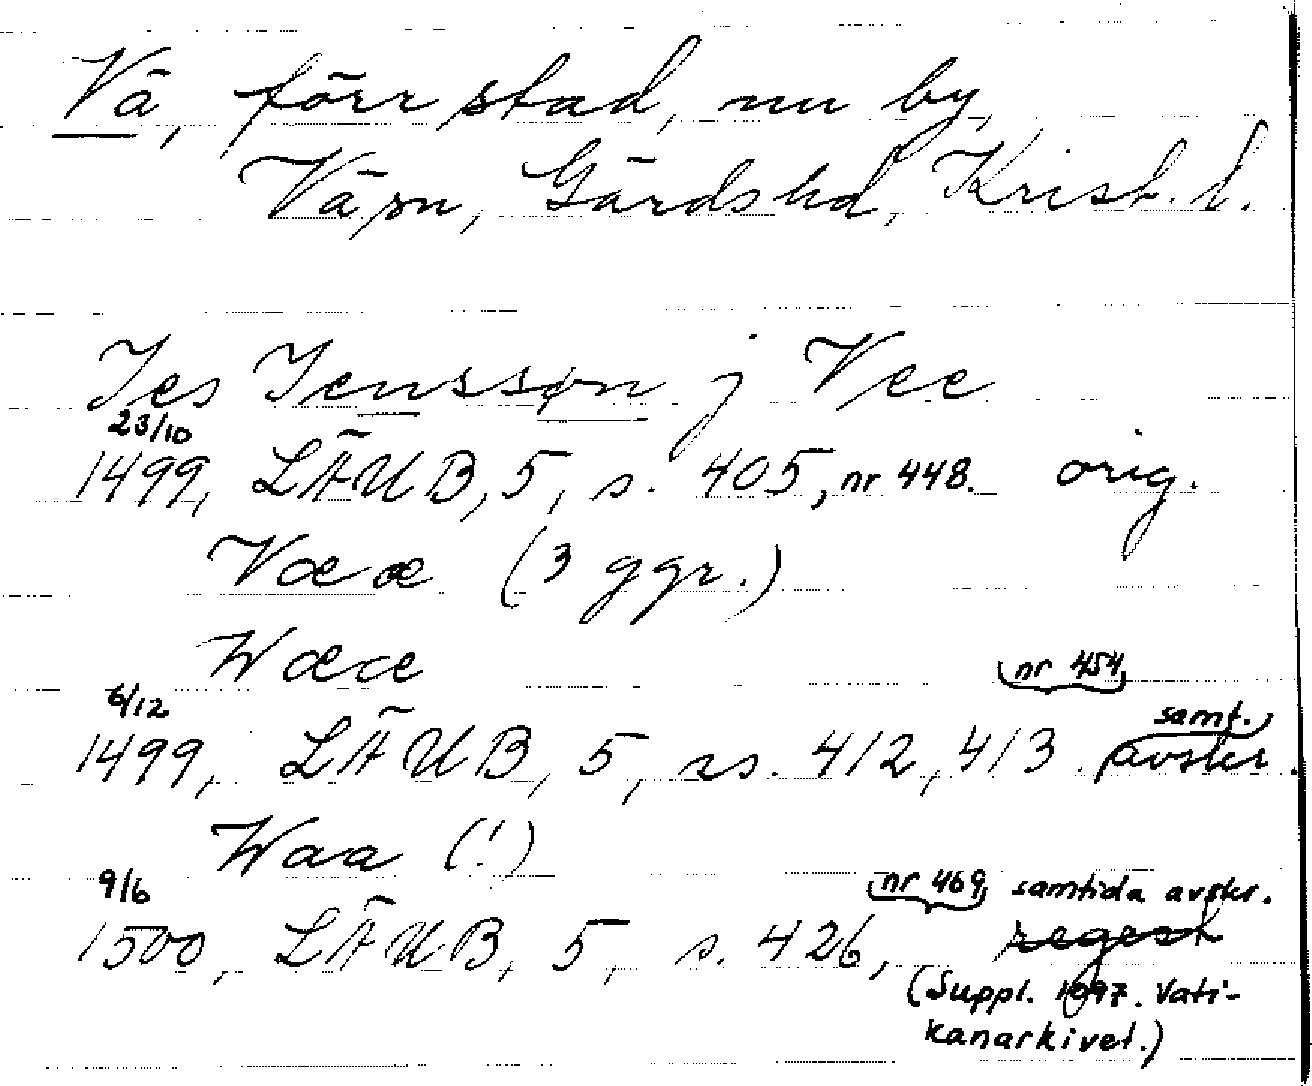 Vä, förr stad, nu by,
Väsn, Gärds hd, Krist. l.
Jes Jenssøn j Vee
23/10
1499, LÄUB, 5, s. 405, nr 448. orig.
Vææ (3 ggr.)
Wææ
6/12
1499, LÄUB, 5, ss. 412, 413 nr 454 samt. avskr.
Waa (!)
9/6
1500, LÄUB, 5, s. 426, nr 469, samtida avskr.
regest
(Suppl. 1097. Vati-
kanarkivet.)